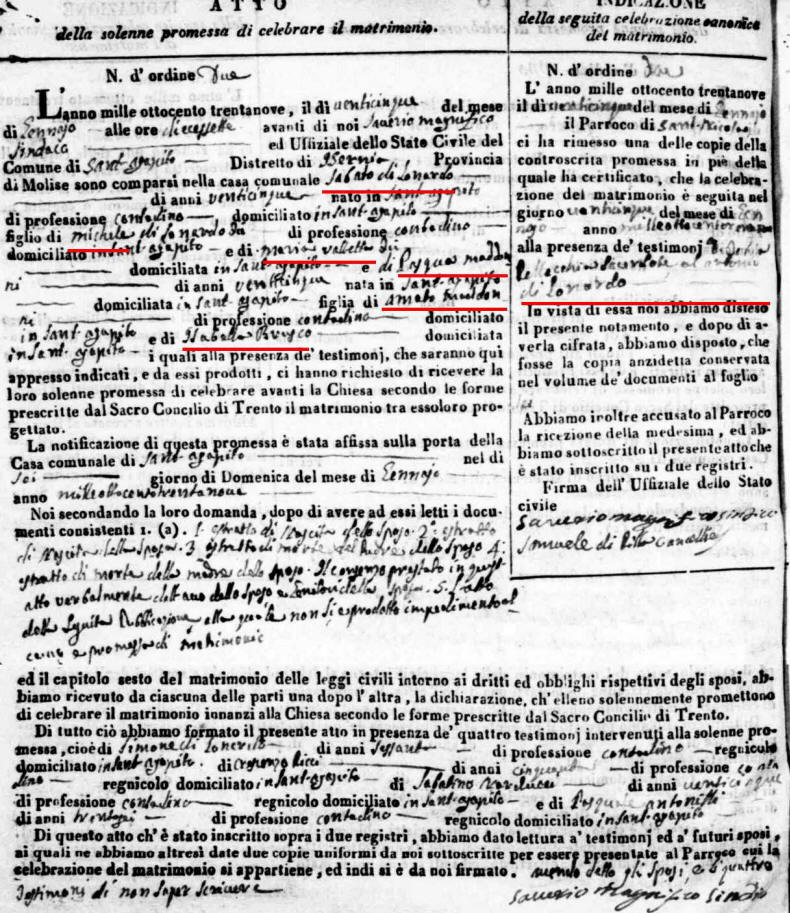 ATTO
della solenne promessa di celebrare il matrimonio.
N. d' ordine due
L'anno mille ottocento trentanove, il dì venticinque del mese
di Gennajo alle ore diecessette avanti di noi Saverio Magnifico
Sindaco ed Uffiziale dello Stato Civile del
Comune di Sant-agapito Distretto di Isernia Provincia
di Molise sono comparsi nella casa comunale Sabato di Lonardo
di anni venticinque nato in Sant-agapito
di professione contadino domiciliato in Sant-agapito
figlio di michele di Lonardo di professione contadino
domiciliato in Sant-agapito e di maria valletta
domiciliata in Sant-agapito e di Pasqua maddon
ni di anni nata in Sant-agapito
domiciliata in Sant-agapito figlia di Amato maddon
ni di professione contadino domiciliato
in Sant-agapito e di Isabella domiciliata
in Sant-agapito i quali alla presenza de' testimonj, che saranno qui
appresso indicati, e da essi prodotti, ci hanno richiesto di ricevere la
loro solenne promessa di celebrare avanti la Chiesa secondo le forme
prescritte dal Sacro Concilio di Trento il matrimonio tra essoloro pro-
gettato.
La notificazione di questa promessa è stata affissa sulla porta della
Casa comunale di Sant-agapito nel dì
Sei giorno di Domenica del mese di Gennajo
anno milleottocentotrentanove
Noi secondando la loro domanda, dopo di avere ad essi letti i docu-
menti consistenti 1. (a). 1° estratto di Nascita dello Sposo 2° estratto
di Nascita della Sposa. 3 estratto di morte del Padre dello Sposo 4:
estratto di morte della madre dello Sposo. Il consenso prestato in quest
atto verbalmente dell'avo dello Sposo e Genitori della Sposa. 5. l'atto
della Seguita Pubblicazione alla quale non si è prodotto impedimento al
cuna e promessa di Matrimonio
ed il capitolo sesto del matrimonio delle leggi civili intorno ai dritti ed obblighi rispettivi degli sposi, ab-
biamo ricevuto da ciascuna delle parti una dopo l' altra, la dichiarazione, ch'elleno solennemente promettono
di celebrare il matrimonio innanzi alla Chiesa secondo le forme prescritte dal Sacro Concilio di Trento.
Di tutto ciò abbiamo formato il presente atto in presenza de' quattro testimonj intervenuti alla solenne pro-
messa, cioè di Simone di Lonardo di anni Sessanta di professione contadino regnicolo
domiciliato in Sant-agapito. di Ricci di anni cinquanta di professione conta
dino regnicolo domiciliato in Sant-agapito di Sabatino di anni venticinque
di professione contadino regnicolo domiciliato in Sant-agapito e di Pasquale Antonilli
di anni di professione contadino regnicolo domiciliato in Sant-agapito
Di questo atto ch' è stato inscritto sopra i due registri, abbiamo dato lettura a' testimonj ed a' futuri sposi,
ai quali ne abbiamo altresì date due copie uniformi da noi sottoscritte per essere presentate al Parroco cui la
celebrazione del matrimonio si appartiene, ed indi si è da noi firmato. avendo detto gli Sposi e i quattro
Testimoni di non saper scrivere
Saverio Magnifico Sindaco
INDICAZIONE
della seguita celebrazione canonica
del matrimonio.
N. d' ordine due
L' anno mille ottocento trentanove
il dì venticinque del mese di Gennajo
il Parroco di Sant-Nicola
ci ha rimesso una delle copie della
controscritta promessa in piè della
quale ha certificato, che la celebra-
zione del matrimonio è seguita nel
giorno venticinque del mese di Gen
najo anno
alla presenza di' testimonj
Pellecchia Sacerdote ed antonio
di Lonardo
In vista di essa noi abbiamo disteso
il presente notamento, e dopo di a-
verla cifrata, abbiamo disposto, che
fosse la copia anzidetta conservata
nel volume de' documenti al foglio
Abbiamo inoltre accusato al Parroco
la ricezione della medesima, ed ab-
biamo sottoscritto il presente atto che
è stato inscritto su i due registri.
Firma dell' Uffiziale dello Stato
civile
Saverio Magnifico sindaco
Samuele di Rita Cancelliere